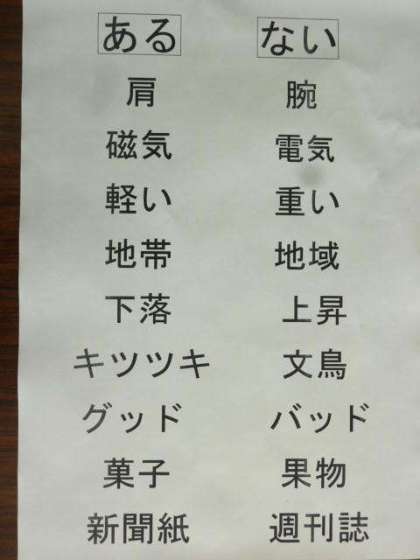 ある ない
肩 腕
磁気 電気
軽い 重い
地帯 地域
下落 上昇
キツツキ 文鳥
グッド バッド
菓子 果物
新聞紙 週刊誌